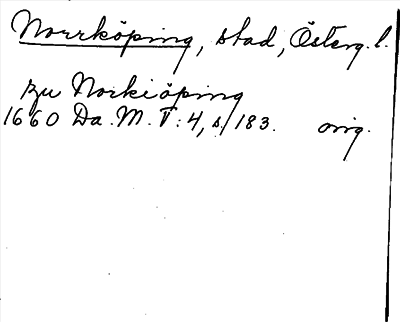 Norrköping, stad, Österg. l.
zu Norkiöping
1660 Da. M. T: 4, s. 183. orig.